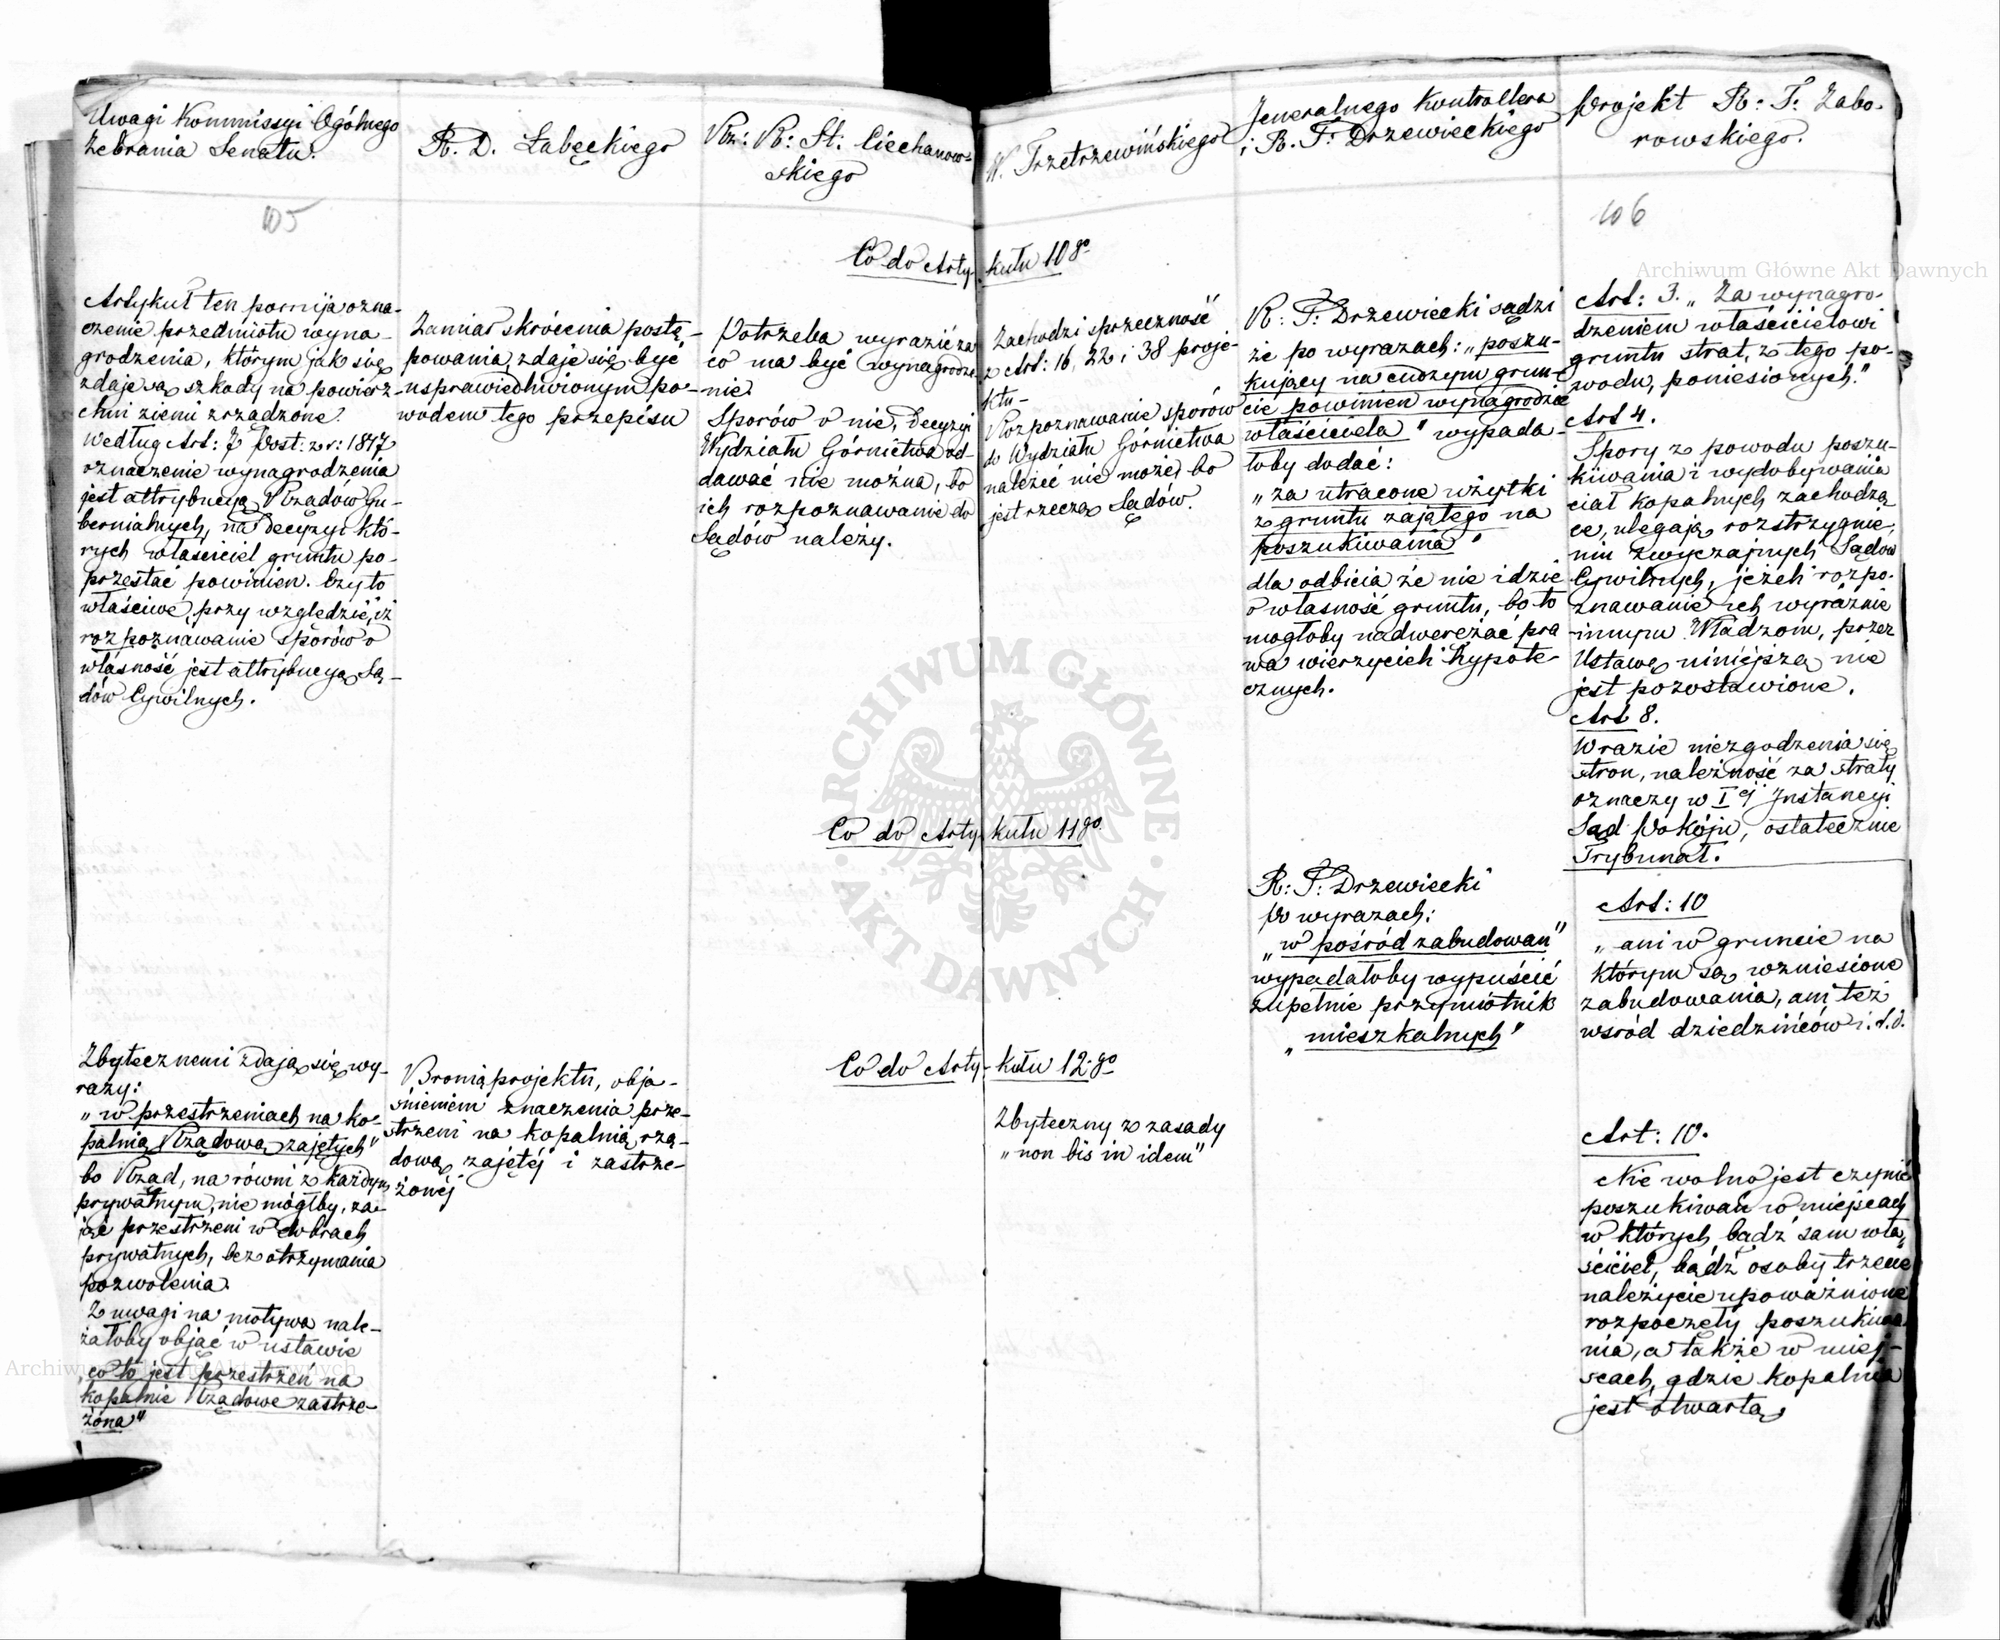 Uwagi Kommissyi Ogólnego
Zebrania Senatu.
R. D. Łabęckiego
Rz: R: St: Ciechanow-
skiego
W. Trzetrzewińskiego
Jeneralnego Kontrollera
i R. T. Drzewieckiego
Projekt R: T: Zabo-
rowskiego.
105
106
Co do Arty-kułu 10go
Artykuł ten pomija ozna-
czenie przedmiotu wyna-
grodzenia, którym jak się
zdaje są szkody na powierz-
chni ziemi zrządzone.
Według Art: 7 Post: z r: 1817
oznaczenie wynagrodzenia
jest attrybucyą Rządów Gu-
bernialnych, na decyzyi któ-
rych właściciel gruntu po-
przestać powinien. Czy to
właściwe, przy względzie, iż
rozpoznawanie sporów o
własność jest attrybucyą Są-
dów Cywilnych.
Zamiar skrócenia postę-
powania, zdaje się być
usprawiedliwionym po-
wodem tego przepisu
Potrzeba wyrazić za
co ma być wynagrodze-
nie.
Sporów o nie, decyzyi
Wydziału Górnictwa od-
dawać nie można, bo
ich rozpoznawanie do
Sądów należy.
Zachodzi sprzeczność
z Art: 16, 22 i 38 proje-
ktu-
Rozpoznawanie sporów
do Wydziału Górnictwa
należeć nie może, bo
jest rzeczą Sądów.
R: T: Drzewiecki sądzi
że po wyrazach: „poszu-
kujący na cudzym grun-
cie powinien wynagrodzić
właściciela" wypada-
łoby dodać:
„za utracone użytki
z gruntu zajętego na
poszukiwania"
dla odbicia że nie idzie
o własność gruntu, bo to
mogłoby nadwerężać pra
wa wierzycieli hypote-
cznych.
Art: 3. „Za wynagro-
dzeniem właścicielowi
gruntu strat, z tego po-
wodu, poniesionych."
Art 4.
Spory z powodu poszu-
kiwania i wydobywania
ciał kopalnych zachodzą
ce, ulegają rozstrzygnie-
niu zwyczajnych Sądów
Cywilnych, jeżeli rozpo-
znawanie ich wyraźnie
innym Władzom, przez
Ustawę niniejszą nie
jest pozostawione.
Art 8.
W razie niezgodzenia się
stron, należność za straty
oznaczy w Iej Instancyi
Sąd Pokoju, ostatecznie
Trybunał.
Co do Arty-kułu 11go
R: T: Drzewiecki
Po wyrazach:
„w pośród zabudowań"
wypadałoby wypuścić
zupełnie przymiotnik
„mieszkalnych"
Art: 10
„ani w gruncie na
którym są wzniesione
zabudowania, ani też
wśród dziedzińców i. t. d.
Co do Arty-kułu 12go
Zbytecznemi zdają się wy-
razy:
„w przestrzeniach na ko-
palnią Rządową zajętych"
bo Rząd, na równi z każdym
prywatnym, nie mógłby, za-
jąć przestrzeni w dobrach
prywatnych, bez otrzymania
pozwolenia.
Z uwagi na motywa nale-
żałoby objąć w ustawie
„co to jest przestrzeń na
kopalnie Rządowe zastrze-
żona"
Broniąprojektu, obja-
śnieniem znaczenia prze-
strzeni na kopalnią rzą-
dową zajętéj i zastrze-
żonéj
Zbyteczny z zasady
„non bis in idem"
Art: 10.
Nie wolno jest czynić
poszukiwań w miejscach
w których bądź sam wła-
ściciel, bądź osoby trzecie
należycie upoważnione
rozpoczęły poszukiwa
nia, a także w miej-
scach, gdzie kopalnia
jest otwarta,
Archiwum Główne Akt Dawnych
ARCHIWUM GŁÓWNE
AKT DAWNYCH
Archiwum Główne Akt Dawnych